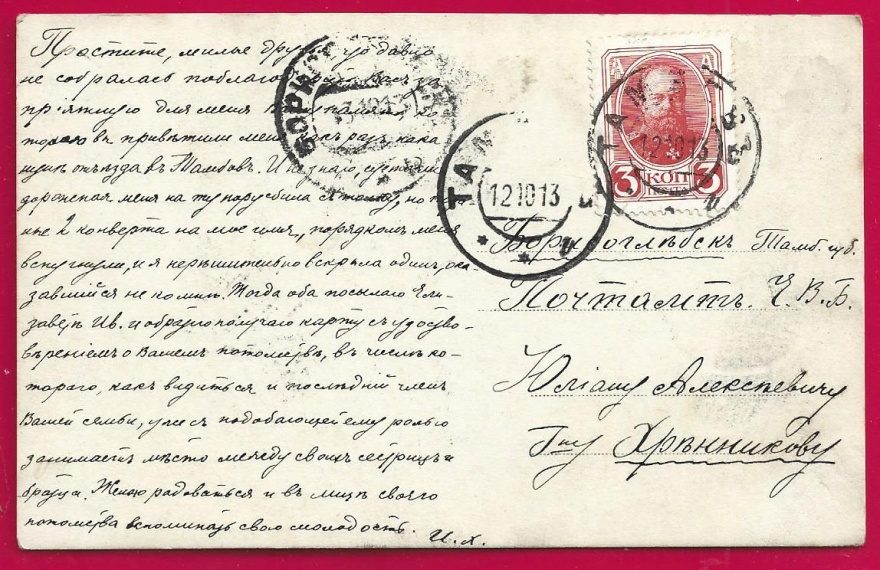 Простите, милые друзья, что давно
не собралась поблагодарить Васъ за
прiятную для меня
вы привѣтили меня какъ разъ нака-
нунѣ отъѣзда въ Тамбовъ. И не знаю,
дорожная меня на ту
2 конверта на мое имя, порядкомъ меня
вспугнули, и я нерѣшительно вскрыла одинъ, ока-
завшiйся не ко мнѣ. Тогда оба посылаю Ели-
завѣтѣ Ив. и обратно получаю карту съ удосто-
вѣренiемъ о Вашемъ потомствѣ, въ числѣ ко-
тораго, какъ видится и послѣднiй членъ
Вашей семьи, уже съ подобающей ему ролью
занимаетъ мѣсто между своихъ сестрицъ и
братца. Желаю радоваться и въ лицѣ своего
потомства вспоминать свою молодость.
И. Х.
БОРИС
10 13
ТАМ
12 10 13
ТАМ ВЪ
12 10 13
3 КОП 3
Борисоглѣбскъ Тамб. губ.
Почтамтъ. Е. В. Б.
Юлiану Алексѣевичу
Г-ну Хрѣнникову